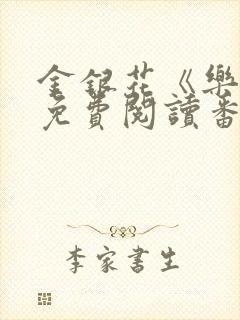 金銀花《樂
免費閱讀番
李家書生